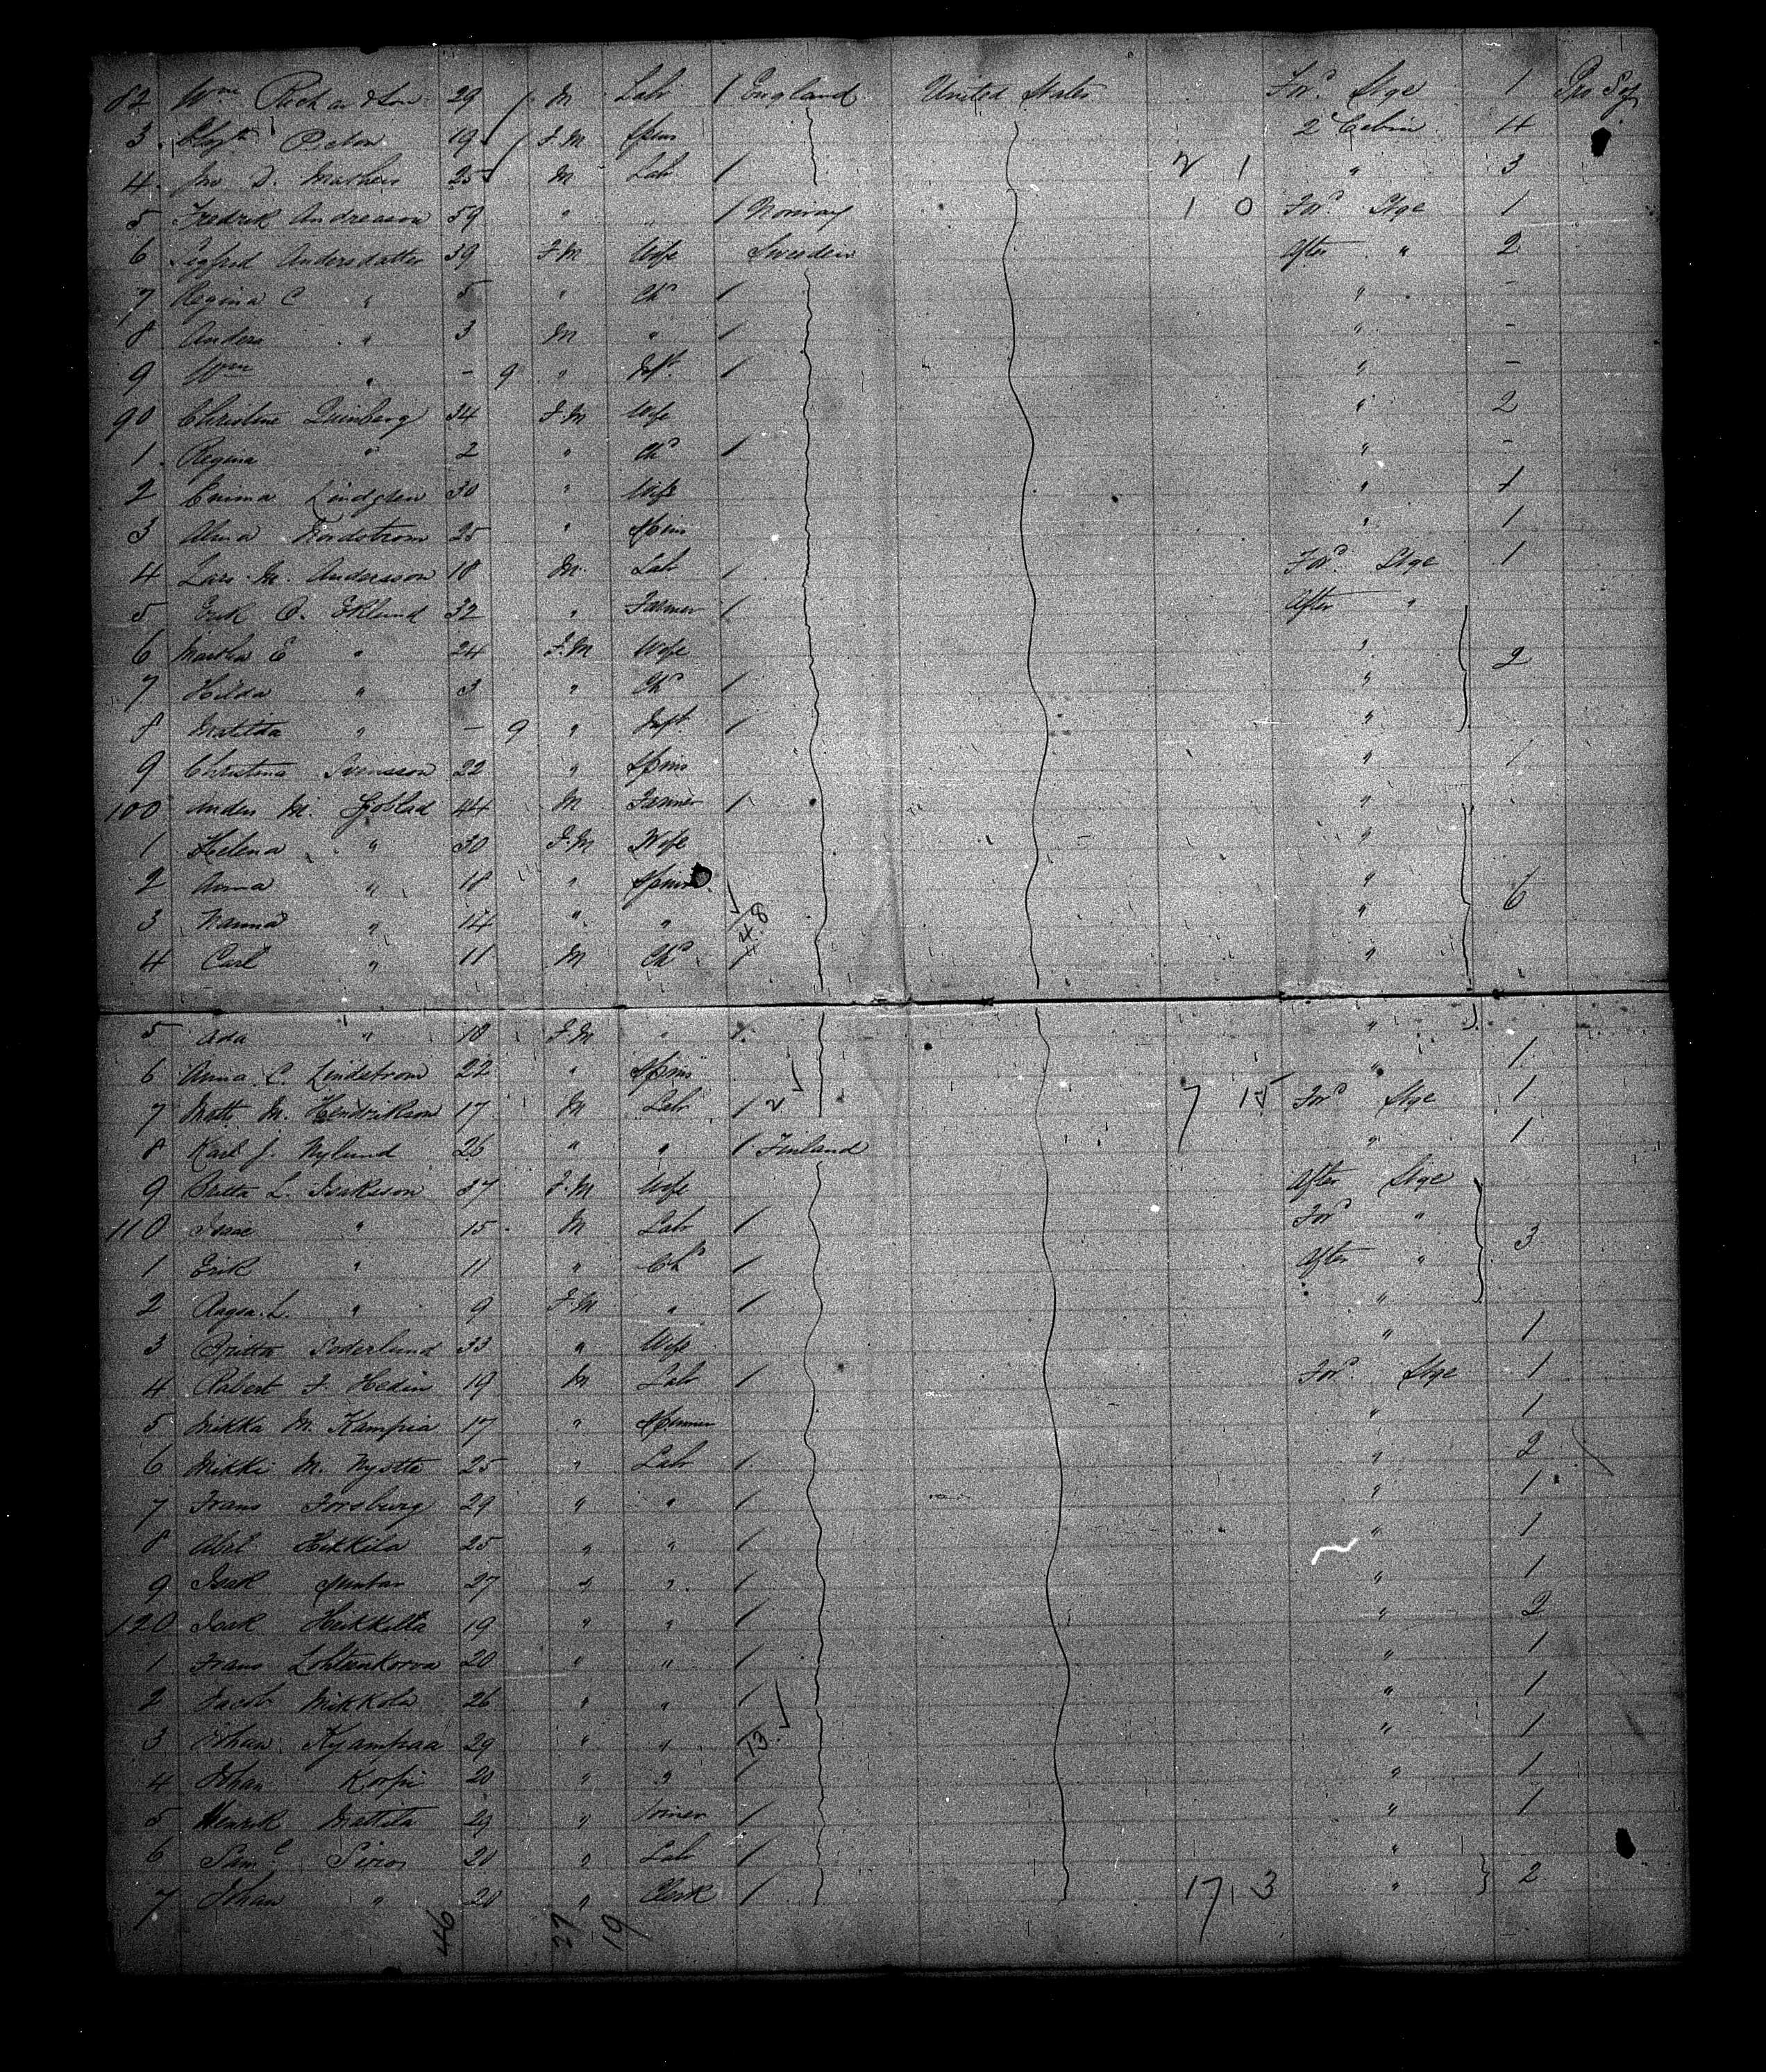 82 Wm Richardson 29 / M Lab 1 England United States Ford Stge 1 Pro Soj
3 Elizth Picton 19 / F.M Spins 2d Cabin 4
4 Jno D. Mathews 25 M Lab 1 2 1 " 3
5 Fredrik Andreason 59 " " 1 Norway 1 0 Ford Stge 1
6 Andersdatter 39 F.M Wife Sweden After " 2
7 Regina C " 5 " Chd 1 " -
8 Anders " 3 M " 1 " -
9 Wm " - 9 " Inft 1 " -
90 Christine 34 F.M Wife " 2
1 Regina " 2 " Chd 1 " -
2 Emma Lindgren 30 " Wife " 1
3 Alma Nordstrom 25 " Spins " 1
4 Lars M. Andreasson 18 M. Lab 1 Ford Stge 1
5 Erik O. Eklund 32 " Farmer 1 After "
6 Martha E " 24 F.M Wife " 2
7 Hilda " 3 " Chd 1 "
8 Matilda " - 9 " Inft 1 "
9 Christina Svensson 22 " Spins " 1
100 Anders M. Sjoblad 44 M Farmer 1 "
1 Helena " 30 F.M Wife "
2 Anna " 18 " Spins " 6
3 Hanna " 14 " " 48 "
4 Carl " 11 M Chd 1 "
5 Ada " 10 F.M " 1 "
6 Anna C. Lindstrom 22 " Spins " 1
7 Matts M. Hendrikson 17 M Lab 1 2 7 15 Ford Stge 1
8 Karl J. Nylund 26 " " 1 Finland " 1
9 Britta L. Isakson 37 F.M Wife After Stge
110 Isaac " 15 M Lab 1 Ford " 3
1 Erik " 11 " Chd 1 After "
2 L. " 9 F.M " 1 "
3 Britta Soderlund 33 " Wife " 1
4 Robert F. Hedin 19 M Lab 1 Ford Stge 1
5 Mikka M. Kampia 17 " " 1
6 Mikki M. 25 " Lab 1 " 2
7 Frans Forsburg 29 " " 1 " 1
8 Abel Hikkila 25 " " 1 " 1
9 Isak 27 " " 1 " 1
120 Isak Heikkilla 19 " " 1 " 2
1 Frans 20 " " 1 " 1
2 Jacob Mikkola 26 " " 1 " 1
3 Johan Kyampaa 29 " " 13 " 1
4 Johan Korpi 20 " " 1 " 1
5 Henrik Mattila 29 " Joiner 1 " 1
6 Saml 20 " Lab 1 "
7 Johan " 20 " Clerk 1 17 3 " 2
46 27 19